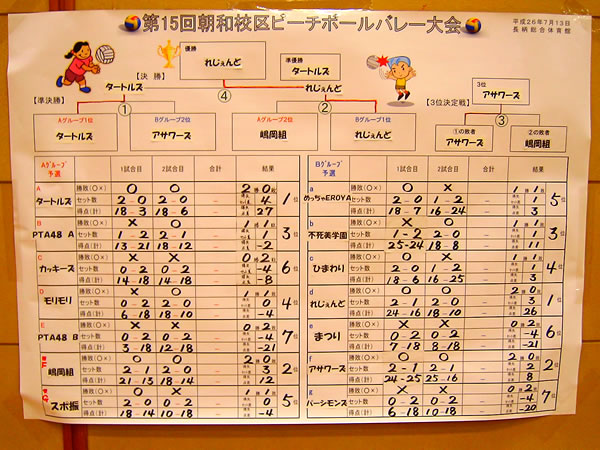 第15回朝和校区ビーチボールバレー大会
平成26年7月13日
長柄総合体育館
優勝
れじぇんど
準優勝
タートルズ
【決 勝】
タートルズ
④
れじぇんど
【準決勝】
①
②
【3位決定戦】
3位
アサワーズ
③
Aグループ1位
タートルズ
Bグループ2位
アサワーズ
Aグループ2位
嶋岡組
Bグループ1位
れじぇんど
①の敗者
アサワーズ
②の敗者
嶋岡組
Aグループ 予選 1試合目 2試合目 合計 結果
A タートルズ
勝敗(○×) ○ ○ 2勝0敗 1位
セット数 2-0 2-0 - 4
得点(計) 18-3 18-6 - 27
B PTA48 A
勝敗(○×) × ○ 1勝1敗 3位
セット数 1-2 2-1 - 1
得点(計) 13-21 18-12 - -2
C カッキーズ
勝敗(○×) × × 0勝2敗 6位
セット数 0-2 0-2 - -4
得点(計) 14-18 14-18 - -8
D モリモリ
勝敗(○×) × ○ 1勝1敗 4位
セット数 0-2 2-0 - 0
得点(計) 6-18 18-10 - -4
E PTA48 B
勝敗(○×) × × 0勝2敗 7位
セット数 0-2 0-2 - -4
得点(計) 3-18 12-18 - -21
嶋岡組
勝敗(○×) ○ ○ 2勝0敗 2位
セット数 2-1 2-0 - 3
得点(計) 21-13 18-14 - 12
スポ振
勝敗(○×) ○ × 1勝1敗 5位
セット数 2-0 0-2 - 0
得点(計) 18-14 10-18 - -4
Bグループ 予選 1試合目 2試合目 合計 結果
a めっちゃEROYA
勝敗(○×) ○ × 1勝1敗 5位
セット数 2-0 1-2 - 1
得点(計) 18-7 16-24 - 3
b 不死美学園
勝敗(○×) × ○ 1勝1敗 3位
セット数 1-2 2-0 - 1
得点(計) 25-24 18-8 - 11
c ひまわり
勝敗(○×) ○ × 1勝1敗 4位
セット数 2-0 1-2 - 1
得点(計) 18-6 16-25 - 3
d れじぇんど
勝敗(○×) ○ ○ 2勝0敗 1位
セット数 2-1 2-0 - 3
得点(計) 24-16 18-10 - 26
e まつり
勝敗(○×) × × 0勝2敗 6位
セット数 0-2 0-2 - -4
得点(計) 7-18 8-18 - -21
f アサワーズ
勝敗(○×) ○ ○ 2勝0敗 2位
セット数 2-1 2-1 - 2
得点(計) 24-25 25-16 - 8
g パーシモンズ
勝敗(○×) × × 0勝2敗 7位
セット数 0-2 0-2 - -4
得点(計) 6-18 10-18 - -20